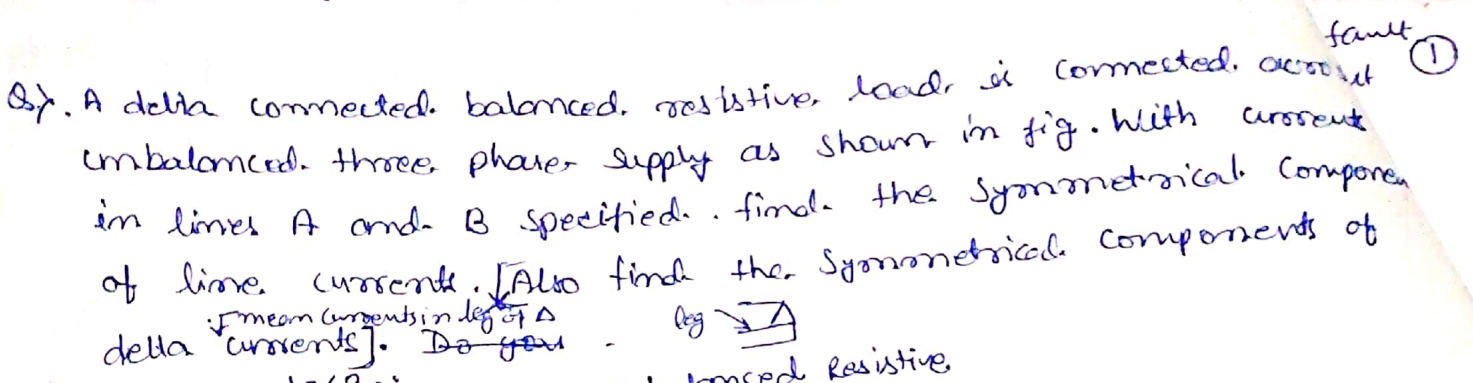 fault ①
Q). A delta connected balanced resistive load is connected across
unbalanced three phase supply as shown in fig. With current
in lines A and B specified. find the symmetrical Componen
of line currents. [Also find the Symmetrical components of
mean currents in leg of Δ
leg
delta currents]. Do you
Resistive